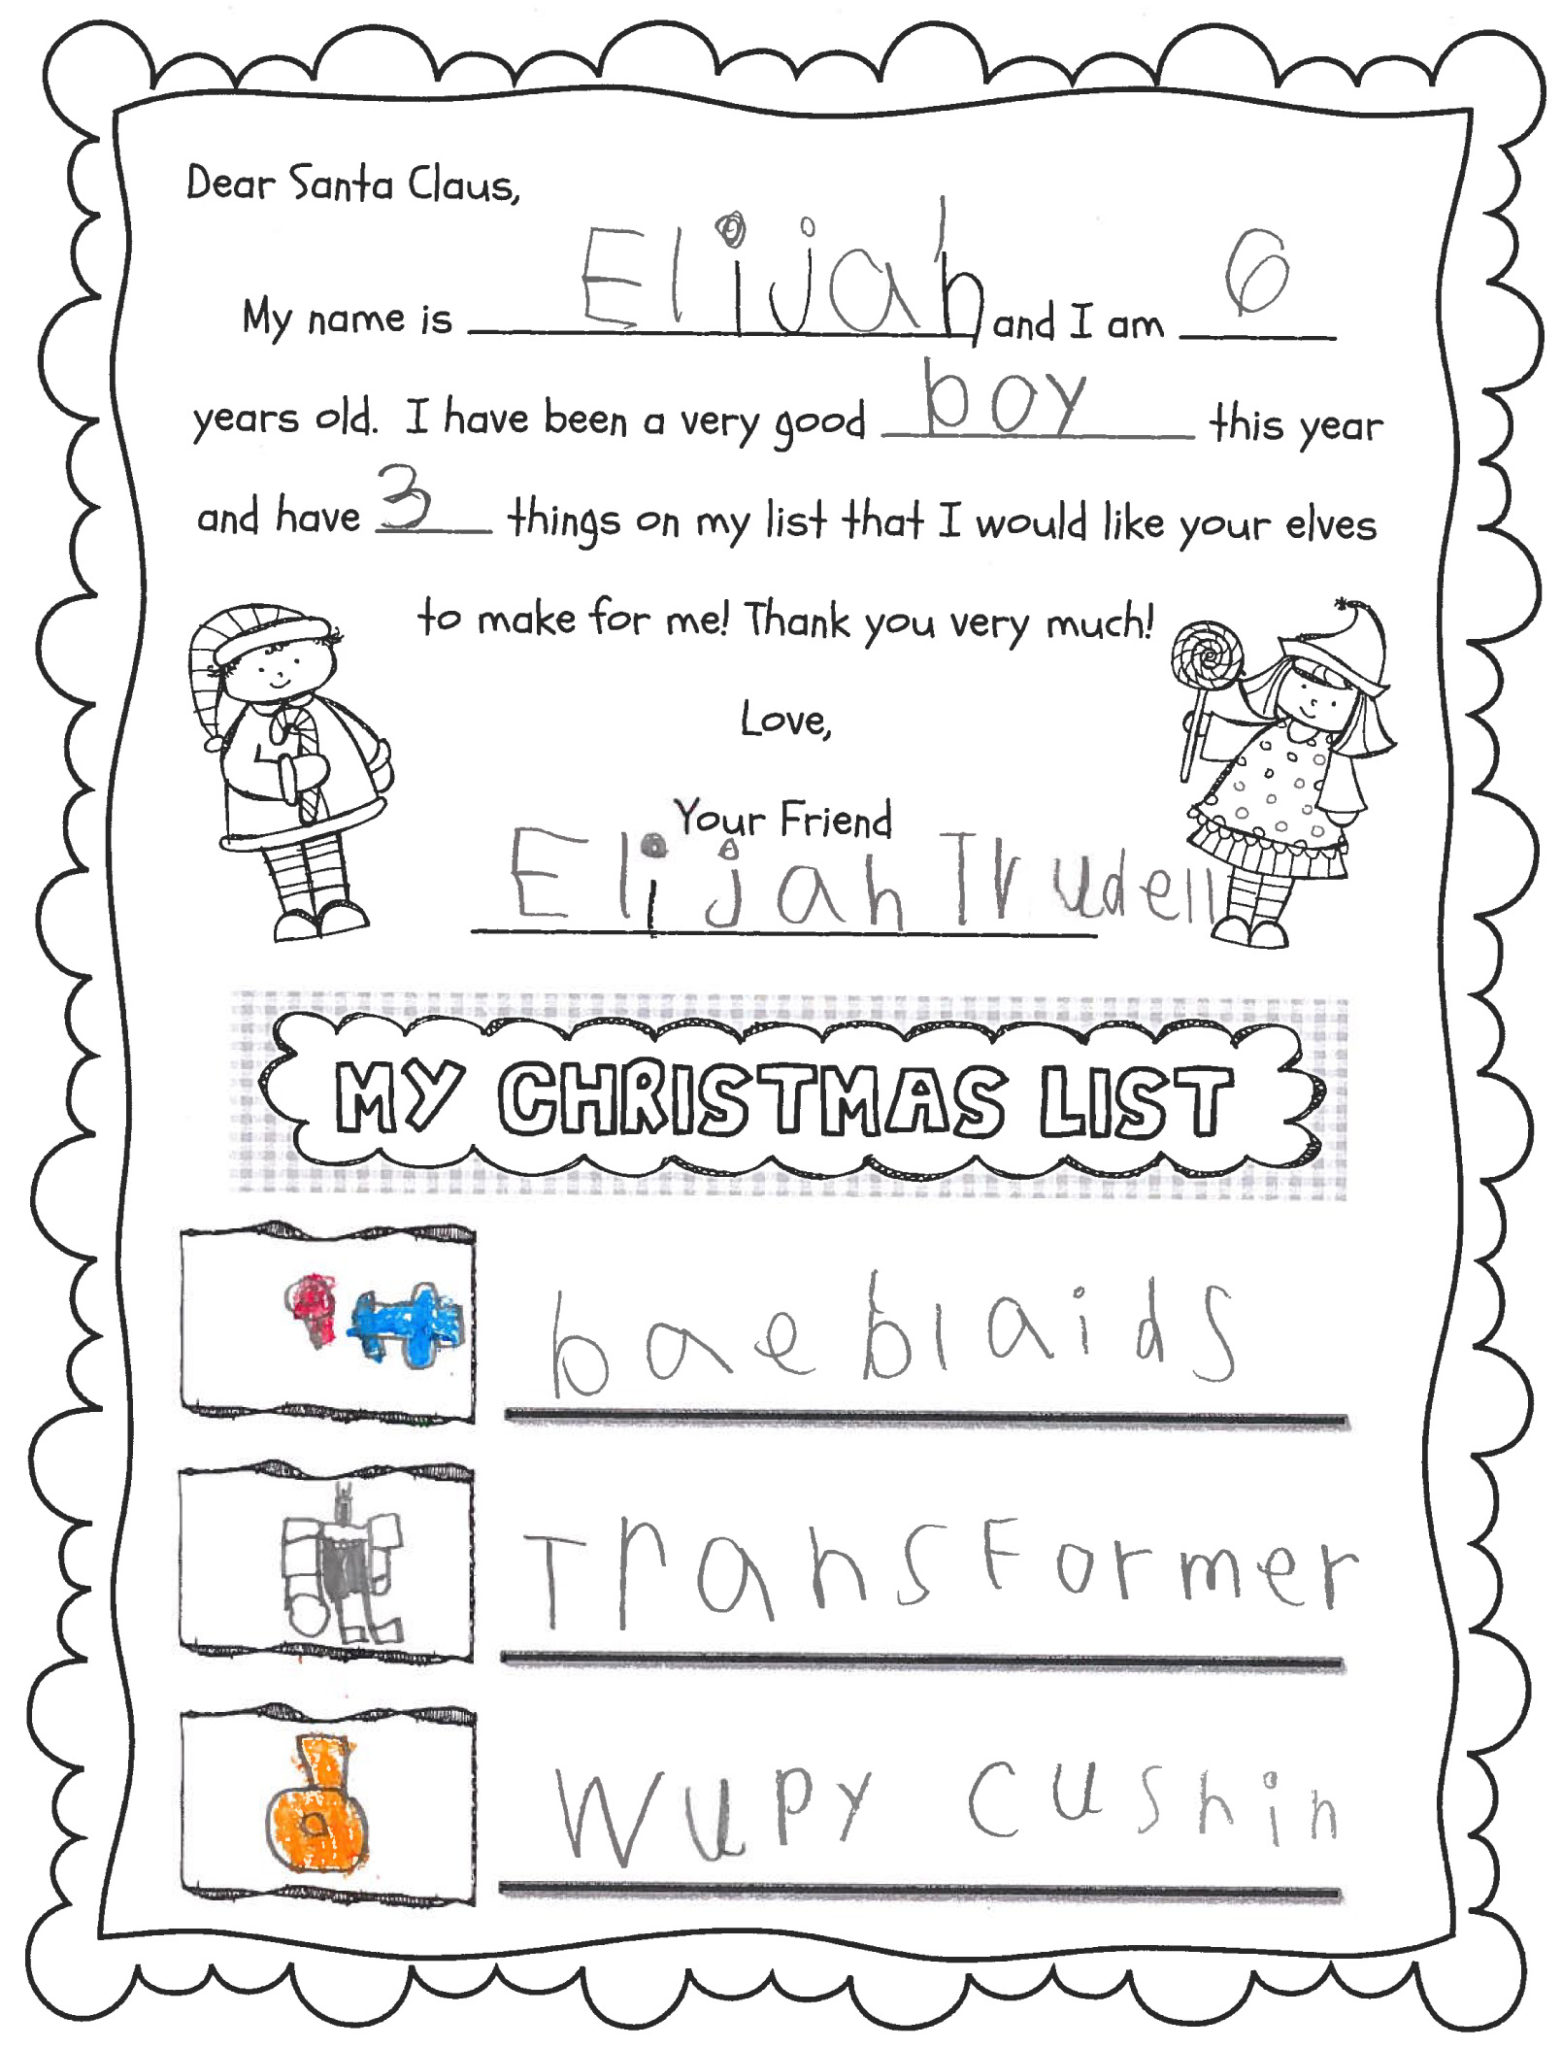 Dear Santa Claus,
My name is Elijah and I am 6
years old. I have been a very good boy this year
and have 3 things on my list that I would like your elves
to make for me! Thank you very much!
Love,
Your Friend
Elijah Trudell
MY CHRISTMAS LIST
baeblaids
TransFormer
Wupy cushin